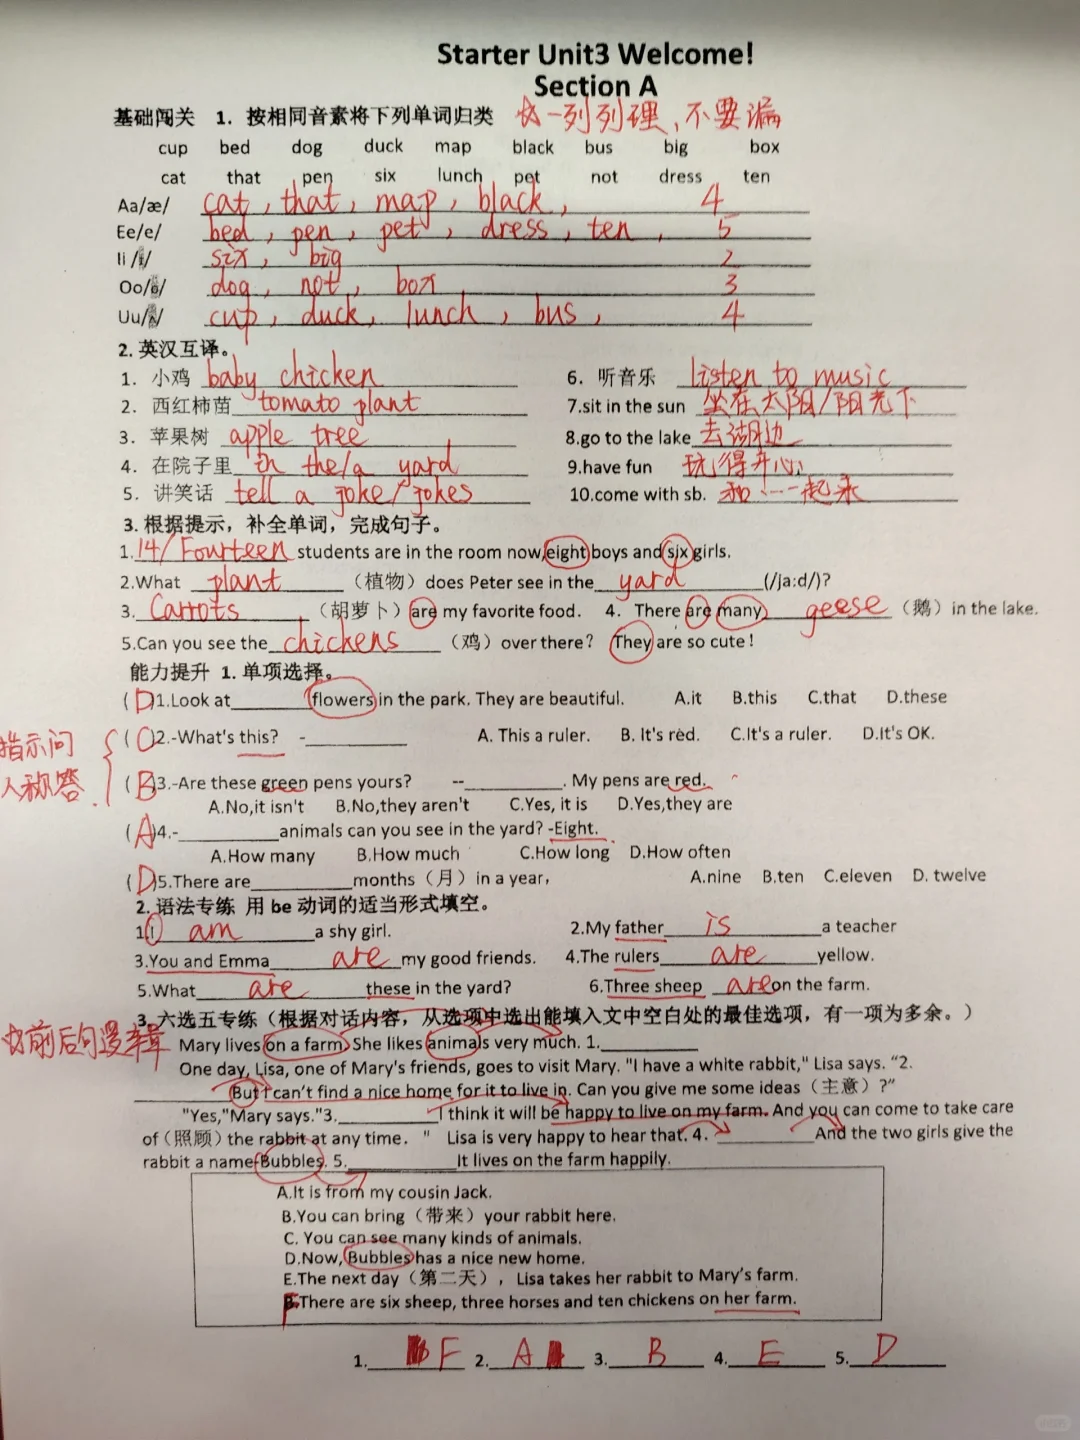 Starter Unit3 Welcome!
Section A
基础闯关 1. 按相同音素将下列单词归类 ☆一列列理、不要漏
cup bed dog duck map black bus big box
cat that pen six lunch pet not dress ten
Aa/æ/ cat, that, map, black, 4
Ee/e/ bed, pen, pet, dress, ten, 5
Ii / / six, big 2
Oo/ / dog, not, box 3
Uu/ / cup, duck, lunch, bus, 4
2. 英汉互译。
1. 小鸡 baby chicken 6. 听音乐 listen to music
2. 西红柿苗 tomato plant 7.sit in the sun 坐在太阳/阳光下
3. 苹果树 apple tree 8.go to the lake 去湖边
4. 在院子里 in the/a yard 9.have fun 玩得开心
5. 讲笑话 tell a joke/jokes 10.come with sb. 和……一起来
3. 根据提示，补全单词，完成句子。
1. 14/Fourteen students are in the room now,eight boys and six girls.
2.What plant （植物）does Peter see in the yard (/ja:d/)?
3. Carrots （胡萝卜）are my favorite food. 4. There are many geese （鹅）in the lake.
5.Can you see the chickens （鸡）over there? They are so cute!
能力提升 1. 单项选择。
( D)1.Look at________ flowers in the park. They are beautiful. A.it B.this C.that D.these
指示问
( C)2.-What's this? -__________ A. This a ruler. B. It's red. C.It's a ruler. D.It's OK.
人称答.
( B)3.-Are these green pens yours? --__________. My pens are red.
A.No,it isn't B.No,they aren't C.Yes, it is D.Yes,they are
( A)4.-__________animals can you see in the yard? -Eight.
A.How many B.How much C.How long D.How often
( D)5.There are__________months（月）in a year, A.nine B.ten C.eleven D. twelve
2. 语法专练 用 be 动词的适当形式填空。
1.I am a shy girl. 2.My father is a teacher
3.You and Emma are my good friends. 4.The rulers are yellow.
5.What are these in the yard? 6.Three sheep are on the farm.
3. 六选五专练（根据对话内容，从选项中选出能填入文中空白处的最佳选项，有一项为多余。）
☆前后句逻辑
Mary lives on a farm. She likes animals very much. 1.__________
One day, Lisa, one of Mary's friends, goes to visit Mary. "I have a white rabbit," Lisa says. "2.
__________ But I can't find a nice home for it to live in. Can you give me some ideas（主意）?"
"Yes,"Mary says."3.__________ I think it will be happy to live on my farm. And you can come to take care
of（照顾）the rabbit at any time. " Lisa is very happy to hear that. 4. __________And the two girls give the
rabbit a name-Bubbles. 5.__________It lives on the farm happily.
A.It is from my cousin Jack.
B.You can bring（带来）your rabbit here.
C. You can see many kinds of animals.
D.Now, Bubbles has a nice new home.
E.The next day（第二天）, Lisa takes her rabbit to Mary's farm.
F.There are six sheep, three horses and ten chickens on her farm.
1. F 2. A 3. B 4. E 5. D